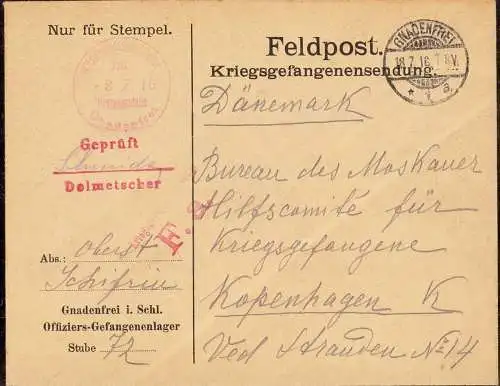 Nur für Stempel.
8 7 16
Gnadenfrei
Geprüft
Dolmetscher
Abs.: Oberst
Schifrin
Gnadenfrei i. Schl.
Offiziers-Gefangenenlager
Stube 72
Feldpost.
Kriegsgefangenensendung.
GNADENFREI
18.7.16.7-8V.
* 1 a.
Dänemark
Bureau des Moskauer
Hilfscomité für
Kriegsgefangene
Kopenhagen K
Ved Stranden No 14
F. a.